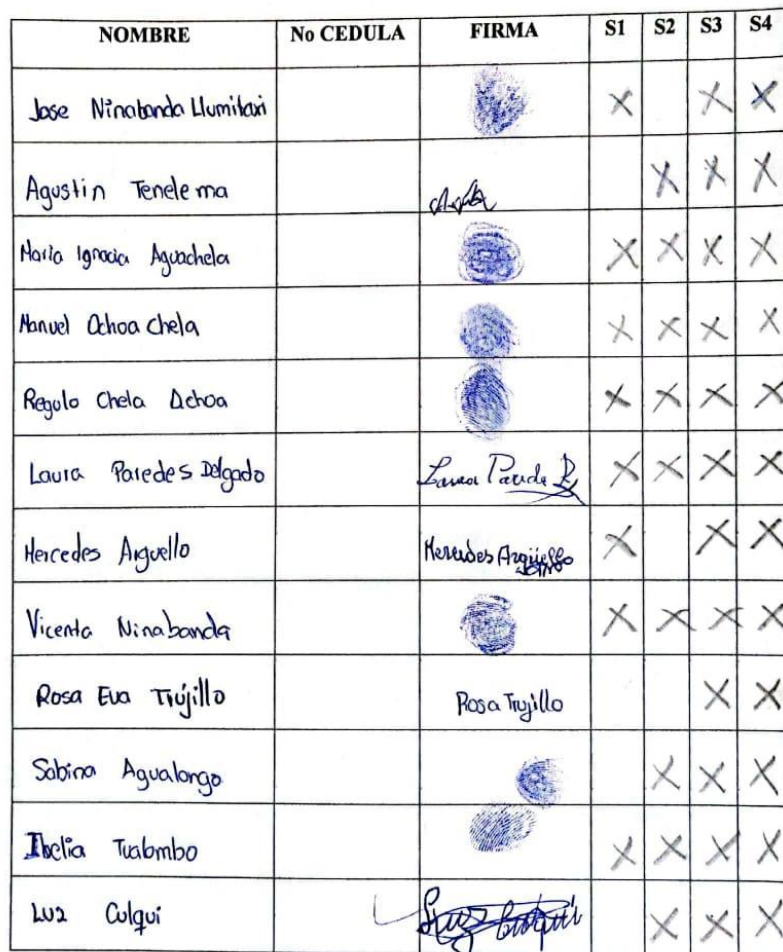 NOMBRE No CEDULA FIRMA S1 S2 S3 S4
Jose Ninabanda Llumitaxi X X X
Agustin Tenelema X X X
Maria Ignacia Aguachela X X X X
Manuel Ochoa Chela X X X X
Regulo Chela Ochoa X X X X
Laura Paredes Delgado Laura Parede D X X X X
Mercedes Arguello Mercedes Argüello X X X
Vicenta Ninabanda X X X X
Rosa Eva Trujillo Rosa Trujillo X X
Sabina Agualongo X X X
Ibelia Tualombo X X X X
Luz Culqui Luz Culqui X X X